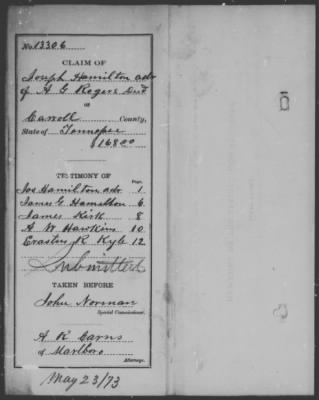 No. 13306
CLAIM OF
Joseph Hamilton adr
of A G Rogers Decd
OF
Carroll County,
State of Tennessee
$168.00
TESTIMONY OF
Page.
Jos Hamilton adr 1
James G. Hamilton 6
James Kirk 8
A W Hawkins 10
Erastus R Kyle 12
Submitted
TAKEN BEFORE
John Norman
Special Commissioner.
A K Carns
of Marlboro
Attorney.
May 23/73